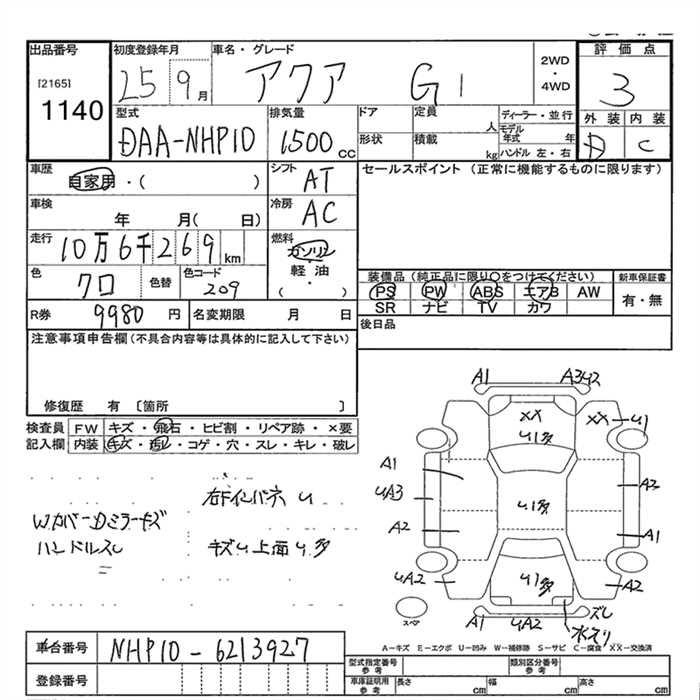 出品番号
[2165]
1140
初度登録年月
25 9月
車名・グレード
アクア G
2WD
・
4WD
評価点
3
外装 内装
D C
型式
DAA-NHP10
排気量
1500 CC
ドア
定員 人
形状
積載 kg
ディーラー・並行
モデル年式 年
ハンドル 左・右
車歴
自家用・( )
シフト
AT
セールスポイント (正常に機能するものに限ります)
車検
年 月( 日)
冷房
AC
走行
10万6千269 km
燃料
ガソリン
軽・油
( ・ )
色
クロ
色替
色コード
209
装備品(純正品に限り〇をつけてください)
PS PW ABS エアB AW
SR ナビ TV カワ
新車保証書
有・無
R券 9980 円
名変期限 月 日
後日品
注意事項申告欄(不具合内容等は具体的に記入して下さい)
修復歴 有 〔箇所 〕
検査員 FW キズ・飛石・ヒビ割・リペア跡・×要
記入欄 内装 キズ・汚レ・コゲ・穴・スレ・キレ・破レ
Wカバー Dミラーキズ
ハンドルスレ
右Fインパネ U
キズU上面U多
A1 A3U2
XX XX U1
U1多
A1
UA3 A3
U1多
A2 A1
UA2 A2
U1多
A1 UA2 ズレ
水スリ
スペア
A-キズ E-エクボ U-凹み W-補修跡 S-サビ C-腐食 XX-交換済
車台番号 NHP10-6213927
登録番号
型式指定番号 参考
類別区分番号 参考
車庫証明用 参考
長さ cm 幅 cm 高さ cm